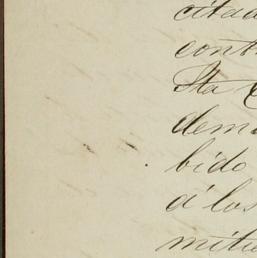 citad
cont
Sta
dem
bido
á los
mitie